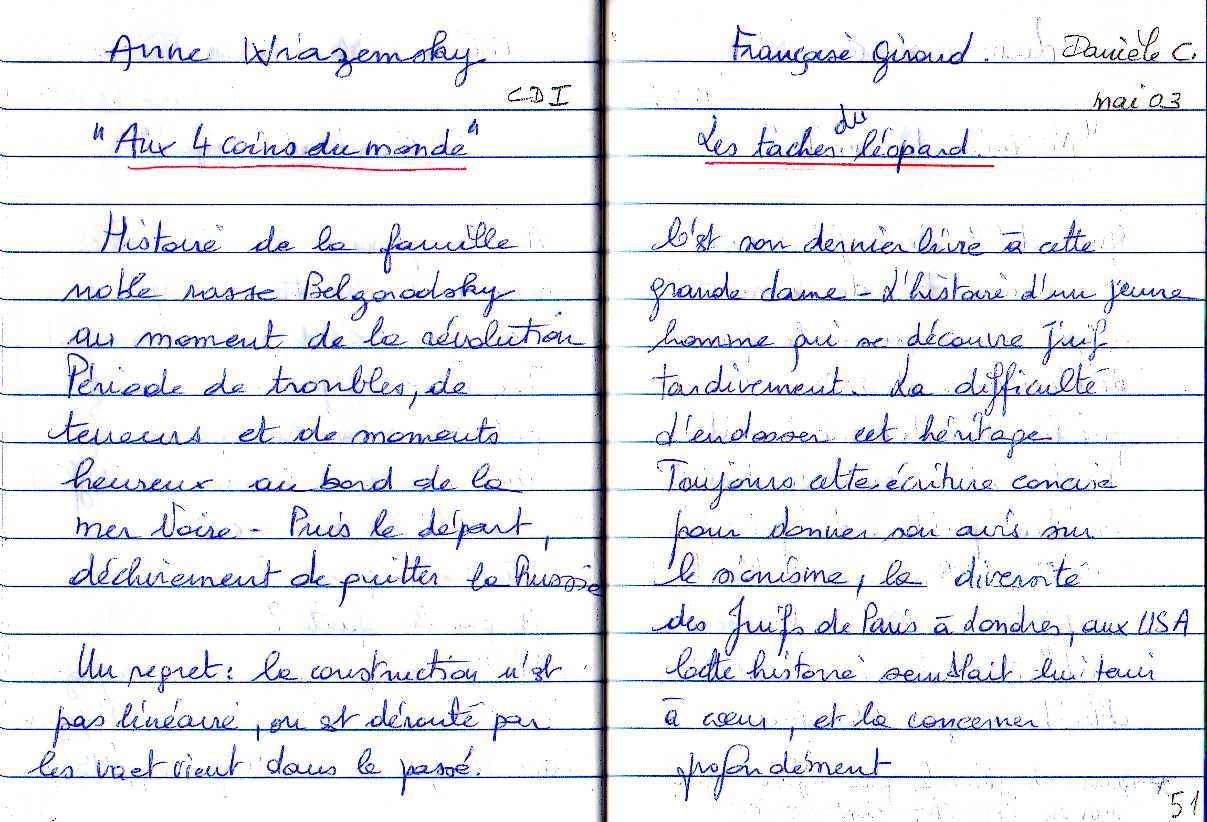 Anne Wiazemsky
CDI
"Aux 4 coins du monde"
Histoire de la famille
noble russe Belgorodsky
au moment de la révolution
Période de troubles, de
terreurs et de moments
heureux au bord de la
mer Noire - Puis le départ,
déchirement de quitter la Russie
Un regret : la construction n'est
pas linéaire, on est dérouté par
les va et vient dans le passé.
Françoise Giroud. Danièle C.
mai 03
Les taches du léopard.
C'est son dernier livre à cette
grande dame - L'histoire d'un jeune
homme qui se découvre Juif
tardivement. La difficulté
d'endosser cet héritage
Toujours cette écriture concise
pour donner son avis sur
le sionisme, la diversité
des Juifs de Paris à Londres, aux USA
Cette histoire semblait lui tenir
à cœur, et la concerner
profondément
51